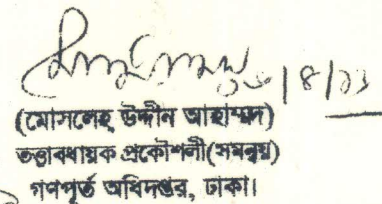 ১৬/৪/১১
(মোসলেহ্ উদ্দীন আহাম্মদ)
তত্ত্বাবধায়ক প্রকৌশলী(সমন্বয়)
গণপূর্ত অধিদপ্তর, ঢাকা।